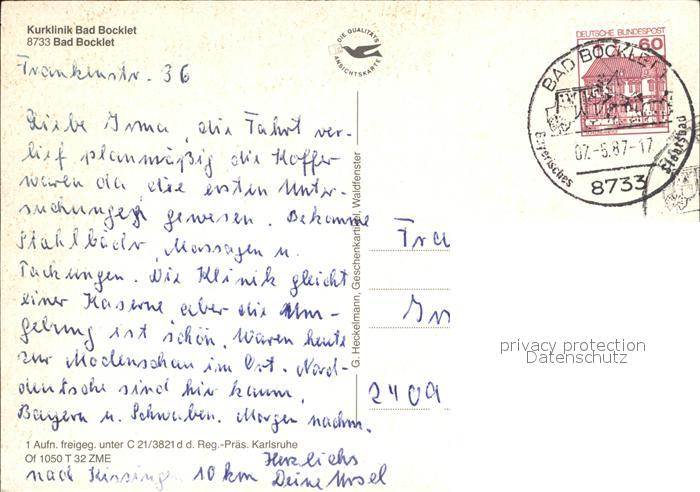 Kurklinik Bad Bocklet
8733 Bad Bocklet
DIE QUALITÄTS
ANSICHTSKARTE
DEUTSCHE BUNDESPOST
60
BAD BOCKLET
07.-5.87-17
8733
Bayerisches
Staatsbad
Frankenstr. 36
Liebe Irma, die Fahrt ver-
lief planmäßig die Koffer
waren da, die ersten Unter-
suchungen gewesen. Bekomme
Stahlbäder, Massagen u.
Packungen. Die Klinik gleicht
einer Kaserne aber die Um-
gebung ist schön. Waren heute
zur Modenschau im Ort. Nord-
deutsche sind hier kaum,
Bayern u. Schwaben. Morgen nachm.
nach Kissingen 10 km Herzlichs
Deine Ursel
G. Heckelmann, Geschenkartikel, Waldfenster
Fra
Ir
2409
1 Aufn. freigeg. unter C 21/3821 d d. Reg.-Präs. Karlsruhe
Of 1050 T 32 ZME
privacy protection
Datenschutz